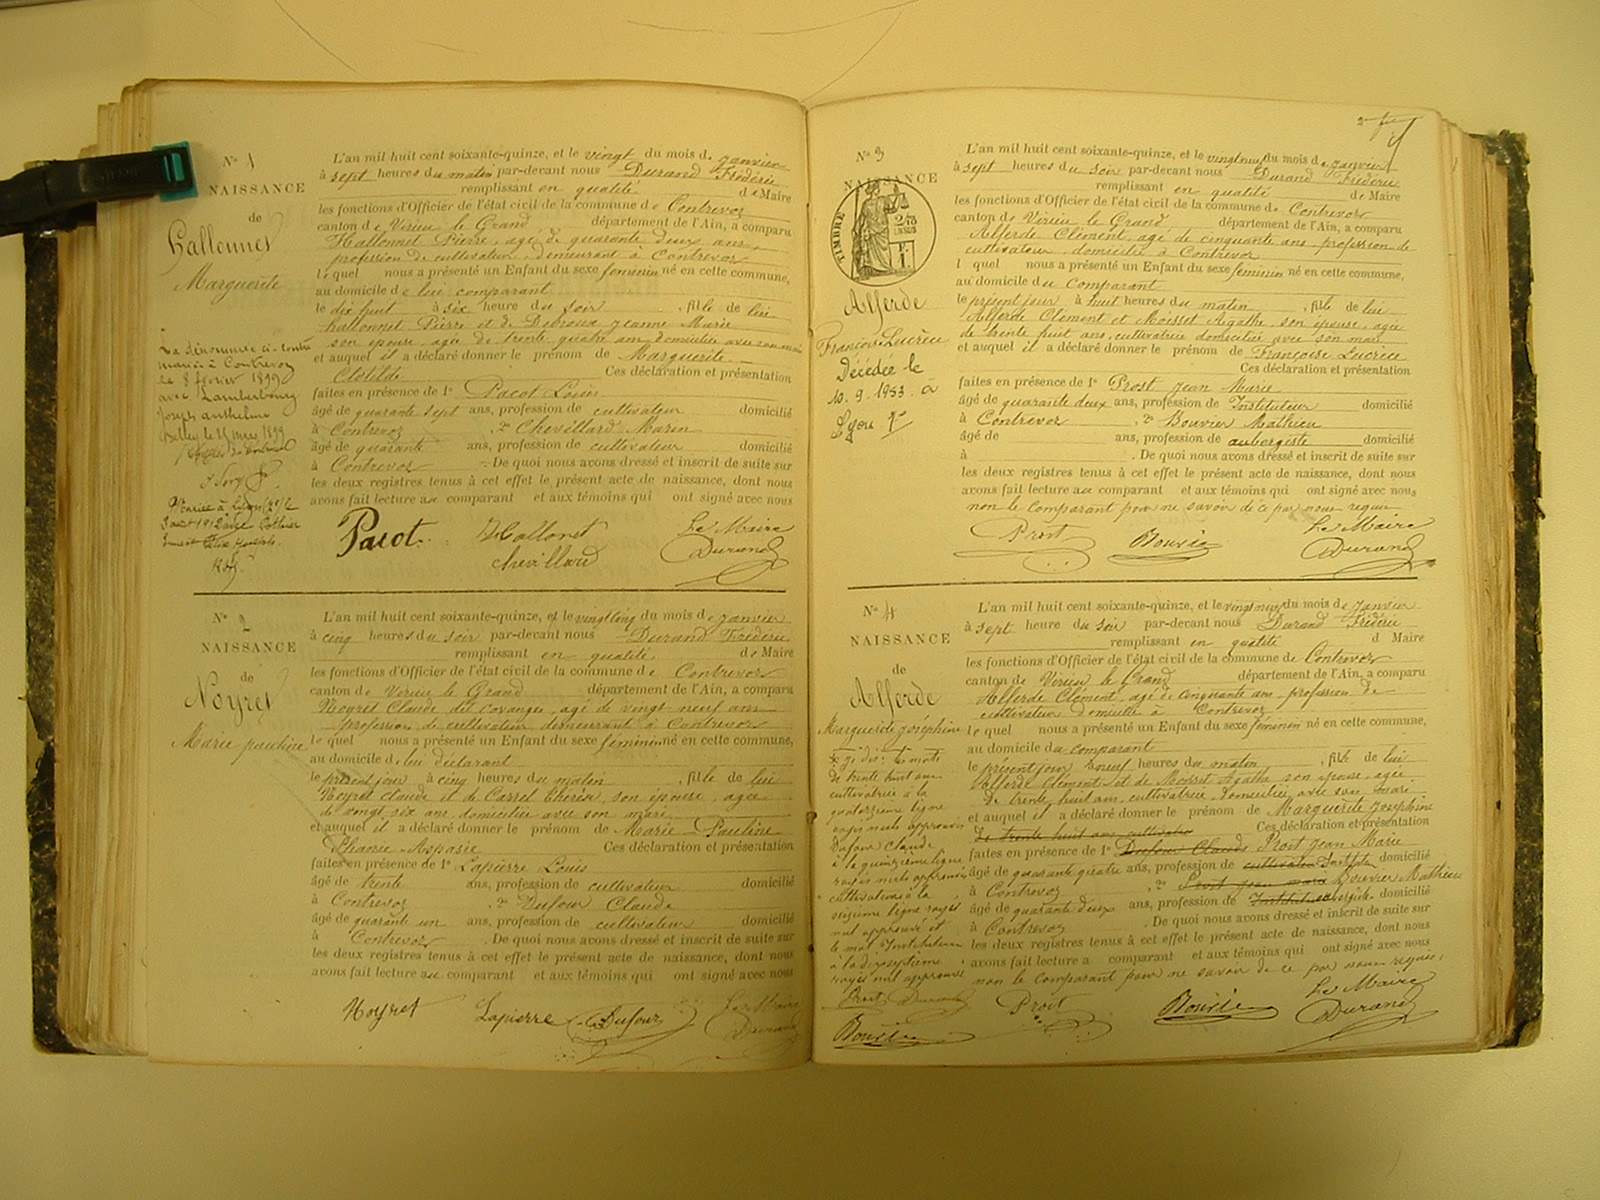 Nº 1
NAISSANCE
de
Hallonnet
Marguerite
La dénommée ci-contre
mariée à Contrevoz
le 8 février 1899
avec Lamberboury
Joseph anthelme
Belley le 25 mars 1899
L'an mil huit cent soixante-quinze, et le vingt du mois de janvier
à sept heures du matin par-devant nous Durand Frédéric
remplissant en qualité de Maire
les fonctions d'Officier de l'état civil de la commune de Contrevoz
canton de Virieu le Grand département de l'Ain, a comparu
Hallonnet Pierre, agé de quarante deux ans,
profession de cultivateur, demeurant à Contrevoz
lequel nous a présenté un Enfant du sexe féminin né en cette commune,
au domicile de lui comparant
le dix huit à six heure du soir, fille de lui
hallonnet Pierre et de Jeanne Marie
son épouse, agée de trente quatre ans domiciliée avec son mari
et auquel il a déclaré donner le prénom de Marguerite
Clotilde Ces déclaration et présentation
faites en présence de 1º Pacot Louis
âgé de quarante sept ans, profession de cultivateur domicilié
à Contrevoz, 2º Chevillard Marin
âgé de quarante ans, profession de cultivateur domicilié
à Contrevoz. De quoi nous avons dressé et inscrit de suite sur
les deux registres tenus à cet effet le présent acte de naissance, dont nous
avons fait lecture au comparant et aux témoins qui ont signé avec nous
Pacot Hallonet Le Maire
chevillard Durand
Nº 2
NAISSANCE
de
Noyret
Marie pauline
L'an mil huit cent soixante-quinze, et le vingt cinq du mois de janvier
à cinq heures du soir par-devant nous Durand Frédéric
remplissant en qualité de Maire
les fonctions d'Officier de l'état civil de la commune de Contrevoz
canton de Virieu le Grand département de l'Ain, a comparu
Noyret Claude dit covanges, agé de vingt neuf ans
profession de cultivateur demeurant à Contrevoz
lequel nous a présenté un Enfant du sexe féminin né en cette commune,
au domicile de lui déclarant
le présent jour à cinq heures du matin, fille de lui
Noyret claude et de Carrel Thérèse, son épouse, agée
de vingt six ans, domiciliée avec son mari
et auquel il a déclaré donner le prénom de Marie Pauline
Aspasie Ces déclaration et présentation
faites en présence de 1º Lapierre Louis
âgé de trente ans, profession de cultivateur domicilié
à Contrevoz, 2º Dufour Claude
âgé de quarante un ans, profession de cultivateur domicilié
à Contrevoz. De quoi nous avons dressé et inscrit de suite sur
les deux registres tenus à cet effet le présent acte de naissance, dont nous
avons fait lecture au comparant et aux témoins qui ont signé avec nous
Noyret Lapierre Dufour Le Maire
Durand
Nº 3
NAISSANCE
TIMBRE
Alferde
Françoise Lucrèce
Décédée le
10.9.1953 à
Lyon 7e
L'an mil huit cent soixante-quinze, et le vingt neuf du mois de janvier
à sept heures du soir par-devant nous Durand Frédéric
remplissant en qualité de Maire
les fonctions d'Officier de l'état civil de la commune de Contrevoz
canton de Virieu le Grand département de l'Ain, a comparu
Alferde Clément, agé de cinquante ans, profession de
cultivateur, domicilié à Contrevoz
lequel nous a présenté un Enfant du sexe féminin né en cette commune,
au domicile du Comparant
le présent jour à huit heures du matin, fille de lui
Alferde Clément et Moisset Agathe, son épouse, agée
de trente huit ans, cultivatrice domiciliée avec son mari
et auquel il a déclaré donner le prénom de Françoise Lucrèce
Ces déclaration et présentation
faites en présence de 1º Prost Jean Marie
âgé de quarante deux ans, profession de Instituteur domicilié
à Contrevoz, 2º Bouvier Mathieu
âgé de ans, profession de aubergiste domicilié
à . De quoi nous avons dressé et inscrit de suite sur
les deux registres tenus à cet effet le présent acte de naissance, dont nous
avons fait lecture au comparant et aux témoins qui ont signé avec nous
non le Comparant pour ne savoir de ce par nous requis
Prost Bouvier Le Maire
Durand
Nº 4
NAISSANCE
de
Alferde
Marguerite Joséphine
les mots
de trente huit ans
cultivatrice à la
quatorzième ligne
rayés nuls approuvés
Dufour Claude
à la quinzième ligne
rayés nuls approuvés
cultivateur à la
seizième ligne rayé
nul approuvé et
le mot Instituteur
à la dix septième
rayé nul approuvé
Prost Durand
Bouvier
L'an mil huit cent soixante-quinze, et le vingt neuf du mois de janvier
à sept heure du soir par-devant nous Durand Frédéric
remplissant en qualité d Maire
les fonctions d'Officier de l'état civil de la commune de Contrevoz
canton de Virieu le Grand département de l'Ain, a comparu
Alferde Clément, agé de cinquante ans, profession de
cultivateur domicilié à Contrevoz
lequel nous a présenté un Enfant du sexe féminin né en cette commune,
au domicile du comparant
le présent jour à neuf heures du matin, fille de lui
Alferde Clément et de Moisset Agathe son épouse, agée
de trente huit ans, cultivatrice, Domiciliée avec son mari
et auquel il a déclaré donner le prénom de Marguerite Joséphine
de trente huit ans cultivatrice Ces déclaration et présentation
faites en présence de 1º Dufour Claude Prost Jean Marie
âgé de quarante quatre ans, profession de cultivateur Instituteur domicilié
à Contrevoz, 2º Prost Jean marie Bouvier Mathieu
âgé de quarante deux ans, profession de Instituteur aubergiste domicilié
à Contrevoz. De quoi nous avons dressé et inscrit de suite sur
les deux registres tenus à cet effet le présent acte de naissance, dont nous
avons fait lecture a comparant et aux témoins qui ont signé avec nous
non le Comparant pour ne savoir de ce par nous requis,
Prost Bouvier Le Maire
Durand